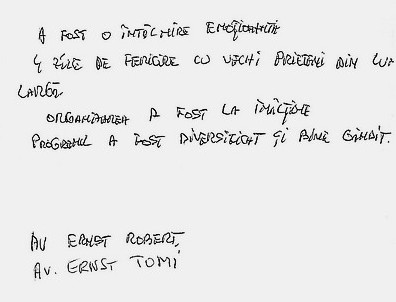 A FOST O ÎNTÂLNIRE EMOȚIONANTĂ
4 ZILE DE FERICIRE CU VECHI PRIETENI DIN LU
LARGĂ
ORGANIZAREA A FOST LA ÎNĂLȚIME
PROGRAMUL A FOST DIVERSIFICAT ȘI BINE GÂNDIT.
AV ERNST ROBERT,
AV. ERNST TOMI